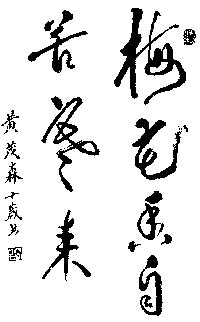 梅花香自
苦寒来
黄茂森十岁书